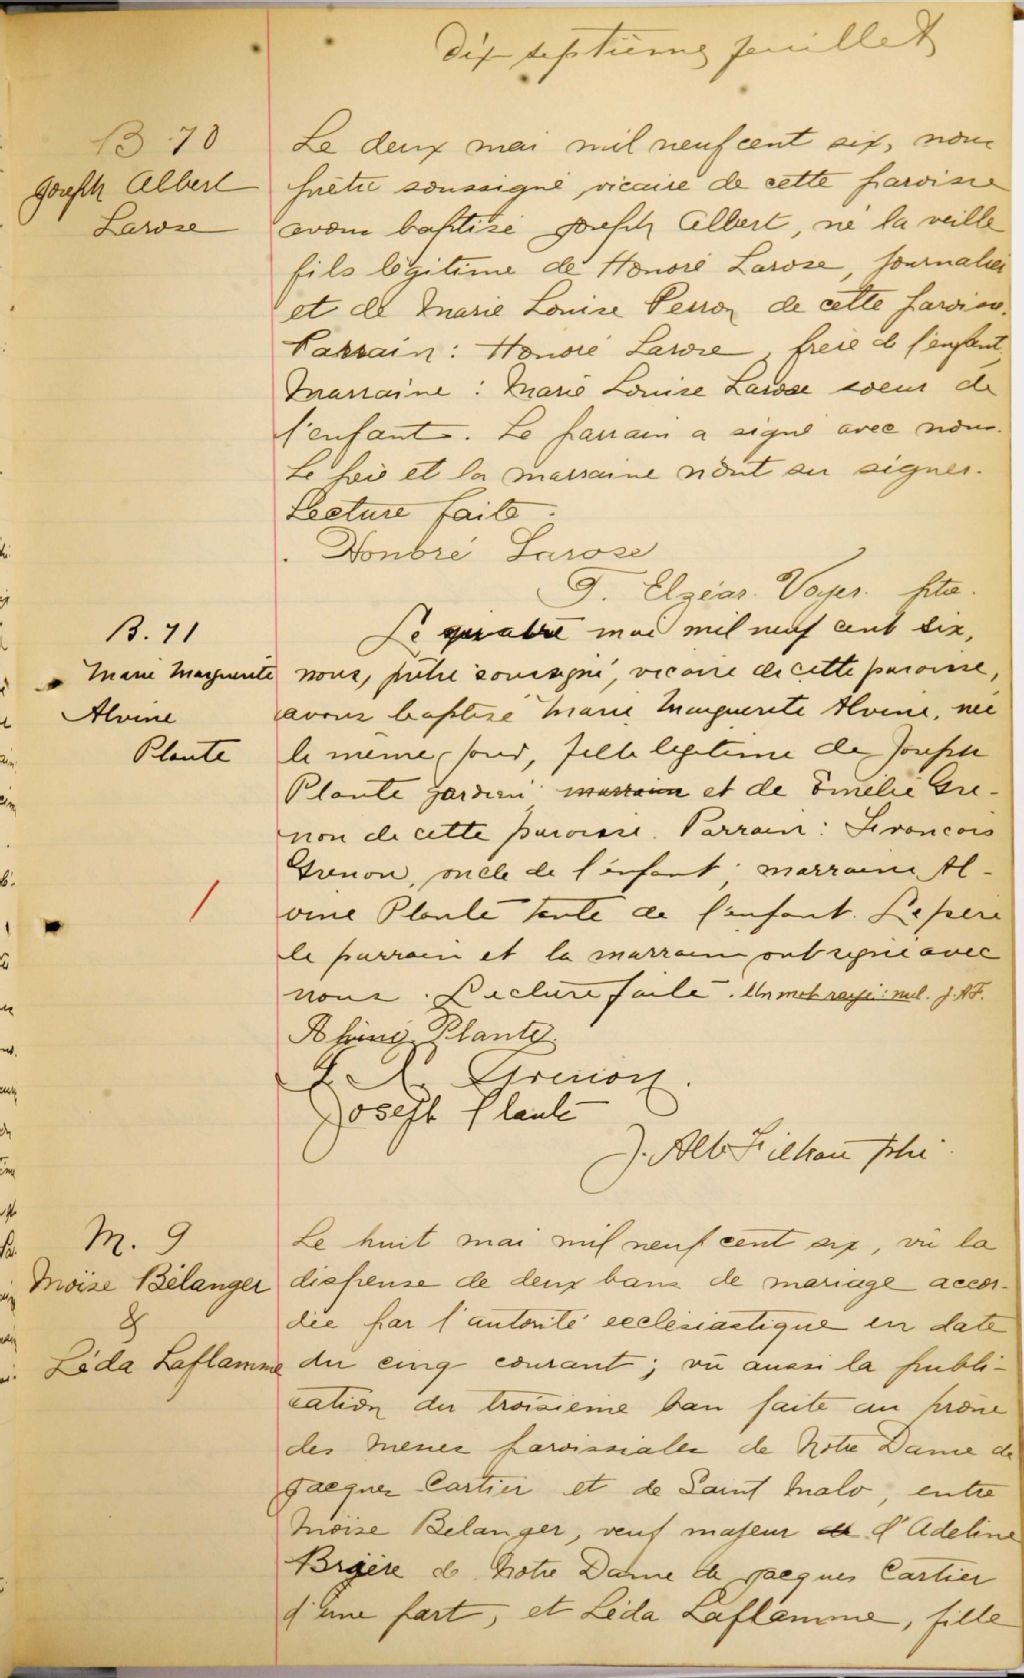 dix-septième feuillet
B 70
Joseph Albert
Larose
Le deux mai mil neuf cent six, nous
prêtre soussigné vicaire de cette paroisse
avons baptisé Joseph Albert, né la veille
fils légitime de Honoré Larose, journalier
et de Marie Louise Perron de cette paroisse.
Parrain : Honoré Larose, frère de l'enfant,
Marraine : Marie Louise Larose soeur de
l'enfant. Le parrain a signé avec nous.
Le père et la marraine n'ont su signer.
Lecture faite.
Honoré Larose
T. Elzéar Voyer ptre.
B. 71
Marie Marguerite
Alvine
Plante
Le quatre mai mil neuf cent six,
nous, prêtre soussigné, vicaire de cette paroisse,
avons baptisé Marie Marguerite Alvine, née
le même jour, fille légitime de Joseph
Plante gardien marraine et de Emélie Gre-
non de cette paroisse. Parrain : Francois
Grenon, oncle de l'enfant ; marraine Al-
vine Plante tante de l'enfant. Le père
le parrain et la marraine ont signé avec
nous. Lecture faite. Un mot rayé : nul. J.A.F.
Alvine Plante
F. X. Grenon.
Joseph Plante
J. Alb Filteau ptre.
M. 9
Moïse Bélanger
&
Léda Laflamme
Le huit mai mil neuf cent six, vû la
dispense de deux bans de mariage accor-
dée par l'autorité ecclésiastique en date
du cinq courant ; vû aussi la publi-
cation du troisième ban faite au prône
des messes paroissiales de Notre Dame de
Jacques Cartier et de Saint Malo, entre
Moïse Belanger, veuf majeur d'Adeline
de Notre Dame de Jacques Cartier
d'une part, et Léda Laflamme, fille